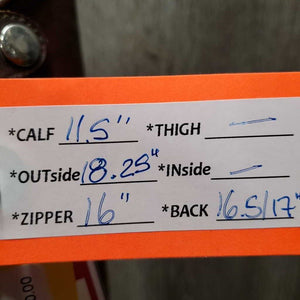 *CALF 11.5" *THIGH —
*OUTside 18.25" *INside —
*ZIPPER 16" *BACK 16.5/17"